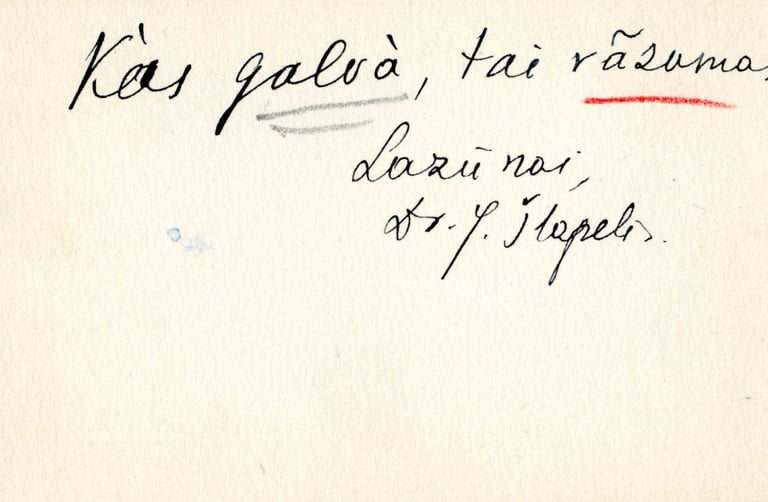 Kàs galvà, tai rãzumas
Lazūnai,
Dr. J. Šlapelis.